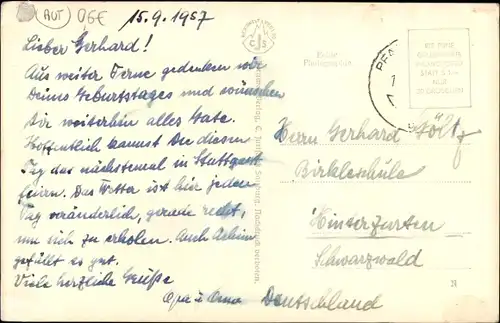 AUT 06€ 15.9.1957
Lieber Gerhard!
Aus weiter Ferne gedenken wir
Deines Geburtstages und wünschen
Dir weiterhin alles Gute.
Hoffentlich kannst Du diesen
Tag das nächstemal in Stuttgart
feiern. Das Wetter ist hier jeden
Tag veränderlich, gerade recht,
um sich zu erholen. Auch Achim
gefällt es gut.
Viele herzliche Grüße
Opa u Oma
CJS
Echte
Photographie
Herrn Gerhard
Birkleschule
Hinterfurten
Schwarzwald
Deutschland